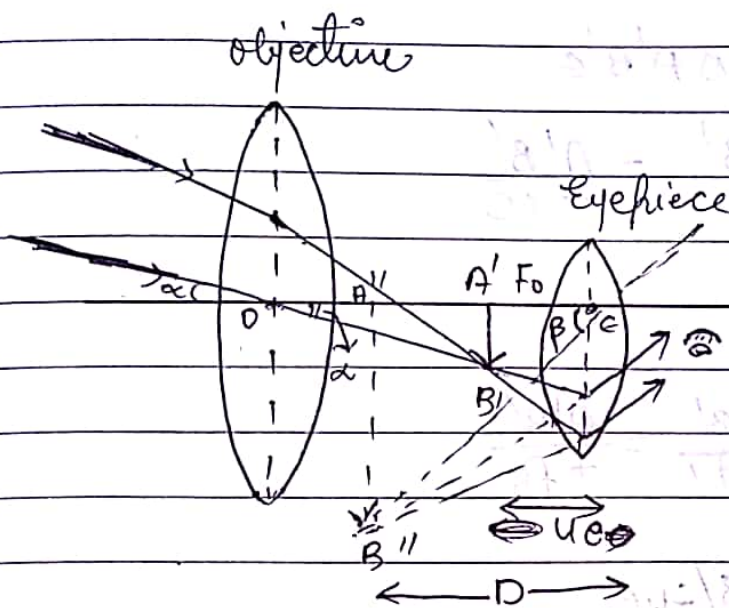 objective
Eyepiece
α
O
A"
A' F₀
β
C
α
B'
B"
uₑ
D